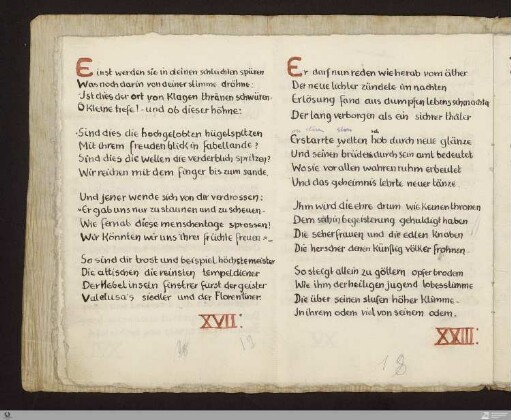 Einst werden sie in deinen schluchten spüren
Was noch darin von deiner stimme dröhne:
›Ist dies der ort von klagen thränen schwüren‹
O kleine tiefe!‹ und ob dieser höhne:
›Sind dies die hochgelobten hügelspitzen
Mit ihrem freudenblick in fabellande?
Sind dies die wellen die verderblich spritzen?
Wir reichen mit dem finger bis zum sande.
Und jener wende sich von dir verdrossen:
»Er gab uns nur zu staunen und zu scheuen
Wie fernab diese menschentage sprossen!
Wir könnten wir uns ihrer früchte freuen »
So sind dir trost und beispiel höchste meister
Die attischen die reinsten tempeldiener
Der Nebel inseln finstrer fürst der geister
Valclusa's siedler und der Florentiner.
XVII:
18
Er darf nun reden wie herab vom äther
Der neue lichter zündete im nachten
Erlösung fand aus dumpfen lebens schmachten
Der lang verborgen als ein sichrer thäter
Erstarrte welten hob durch neue glänze
Und seinen brüdern durch sein amt bedeutet
Wo sie vor allen wahren ruhm erbeutet
Und das geheimnis lehrte neuer tänze.
Ihm wird die ehre drum wie keinen thronen
Dem sich in begeisterung gehuldigt haben
Die seherfrauen und die edlen knaben
Die herscher denen künftig völker frohnen.
So steigt allein zu göttern opferbrodem
Wie ihm der heiligen jugend lobesstimme
Die über seinen stufen höher klimme
In ihrem odem viel von seinem odem.
XXIII:
18